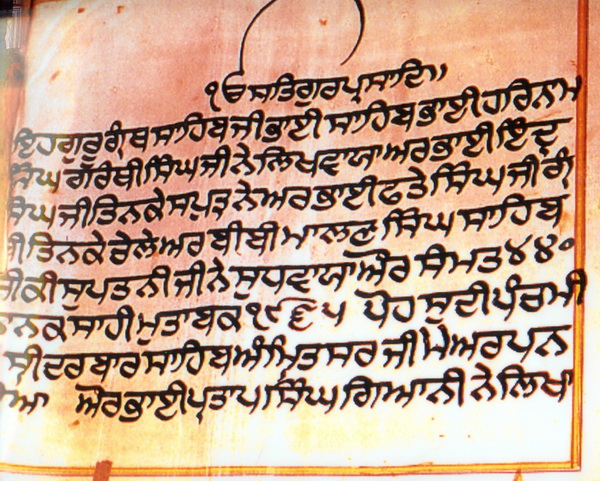 ੴ ਸਤਿਗੁਰਪ੍ਰਸਾਦਿ॥
ਇਹ ਗੁਰੂ ਗ੍ਰੰਥ ਸਾਹਿਬ ਜੀ ਭਾਈ ਸਾਹਿਬ ਭਾਈ ਹਰਿਨਾਮ
ਸਿੰਘ ਗਰੰਥੀ ਸਿੰਘ ਜੀ ਨੇ ਲਿਖਵਾਯਾ ਅਰ ਭਾਈ ਇੰਦ੍ਰ
ਸਿੰਘ ਜੀ ਤਿਨਕੇ ਸਪੁਤ੍ਰ ਨੇ ਅਰ ਭਾਈ ਫਤੇ ਸਿੰਘ ਜੀ ਗ੍ਰੰ
ਤਿਨਕੇ ਚੇਲੇ ਅਰ ਬੀਬੀ ਮਾਲਣ ਸਿੰਘ ਸਾਹਿਬ
ਜੀ ਕੀ ਸੁਪਤਨੀ ਜੀ ਨੇ ਸੁਧਵਾਯਾ ਔਰ ਸੰਮਤ ੪੪੦
ਨਾਨਕਸਾਹੀ ਮੁਤਾਬਕ ੧੯੬੫ ਪੋਹ ਸੁਦੀ ਪੰਚਮੀ
ਸ੍ਰੀ ਦਰਬਾਰ ਸਾਹਿਬ ਅੰਮ੍ਰਿਤਸਰ ਜੀ ਮੇ ਅਰਪਨ
ਔਰ ਭਾਈ ਪ੍ਰਤਾਪ ਸਿੰਘ ਗਿਆਨੀ ਨੇ ਲਿਖਾ